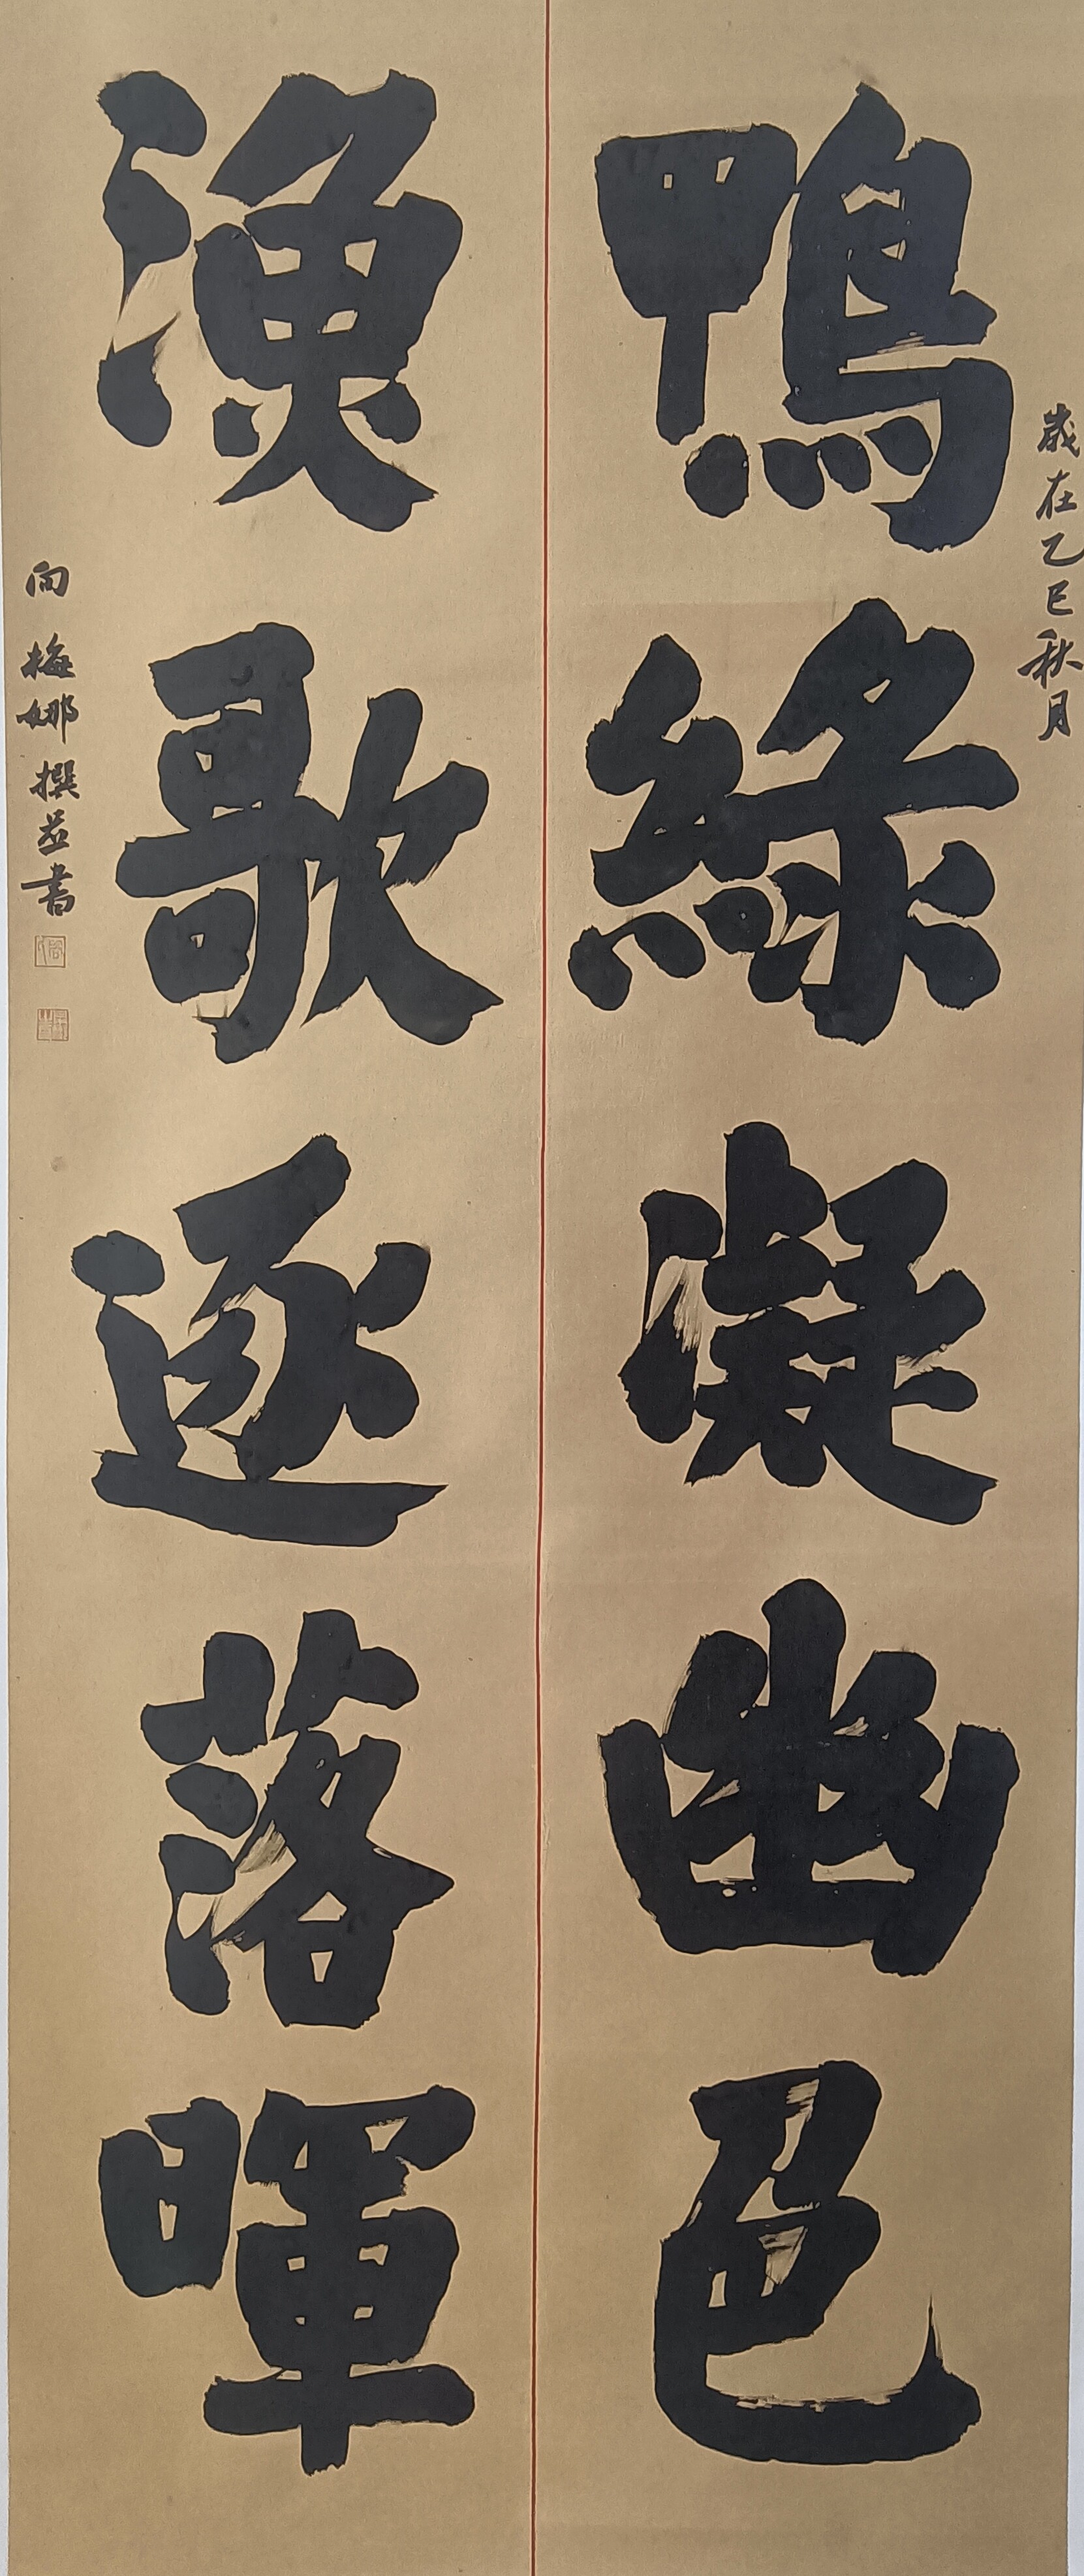 歲在乙巳秋月
鴨綠凝幽色
漁歌逐落暉
向梅娜撰並書